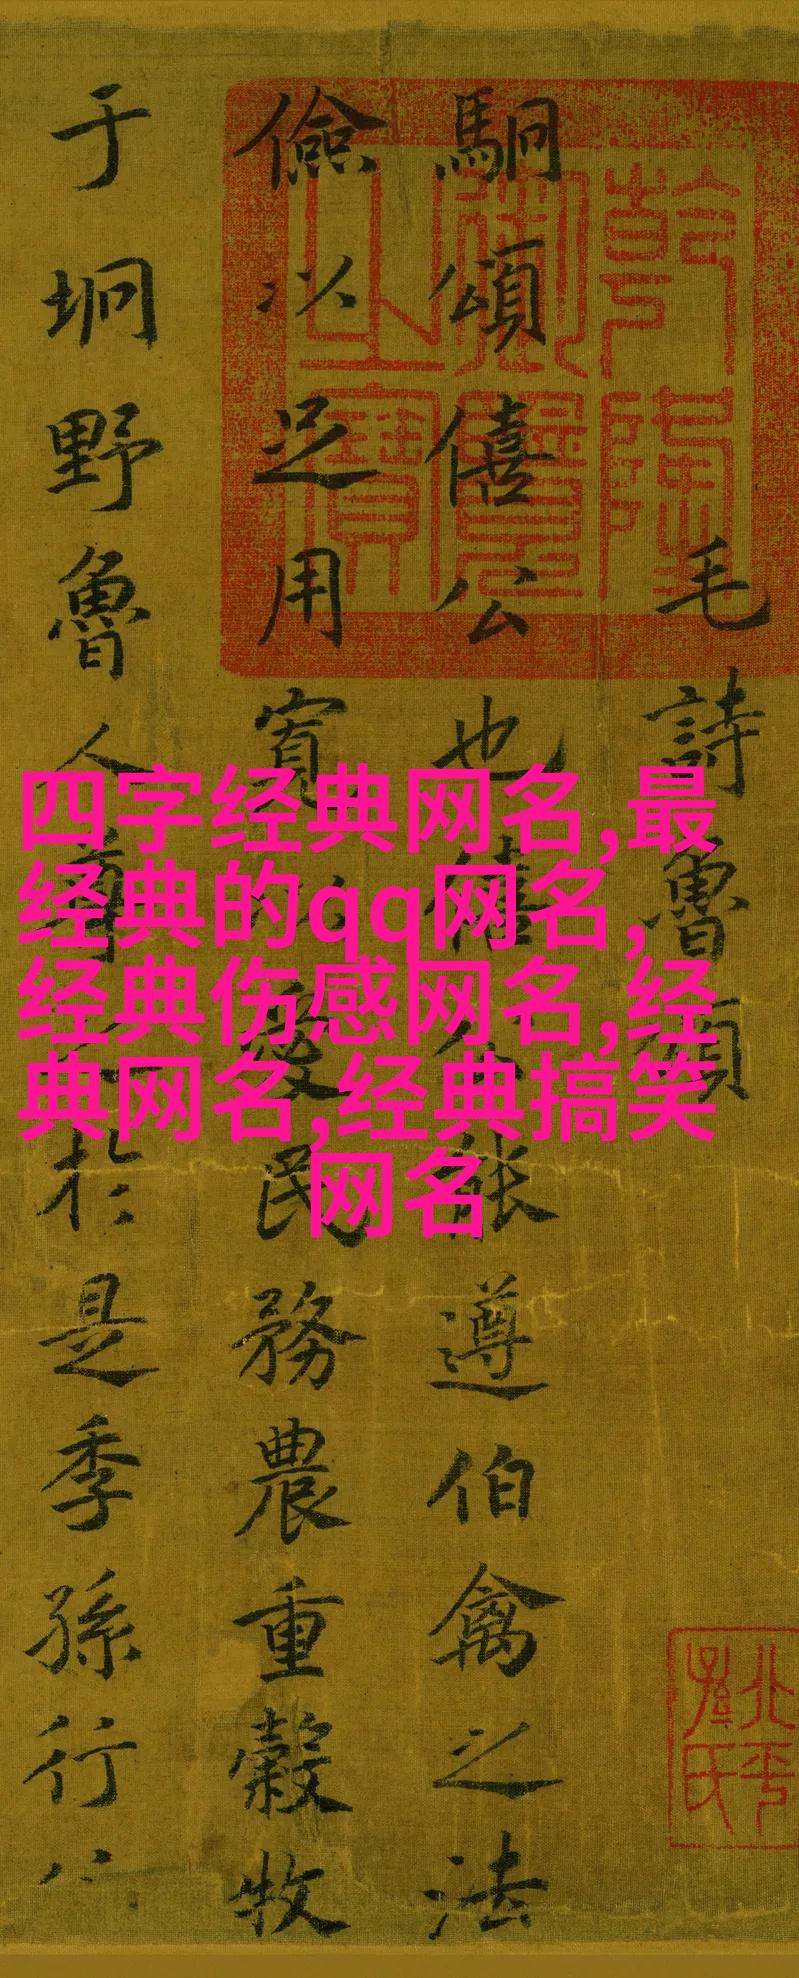 毛詩魯頌
駉頌僖公也僖公能遵伯禽之法
儉以足用寬以愛民務農重穀牧
于坰野魯人尊之於是季孫行
乾隆
御覽
之寶
北平
孫氏
四字经典网名,最
经典的qq网名,
经典伤感网名,经
典网名,经典搞笑
网名